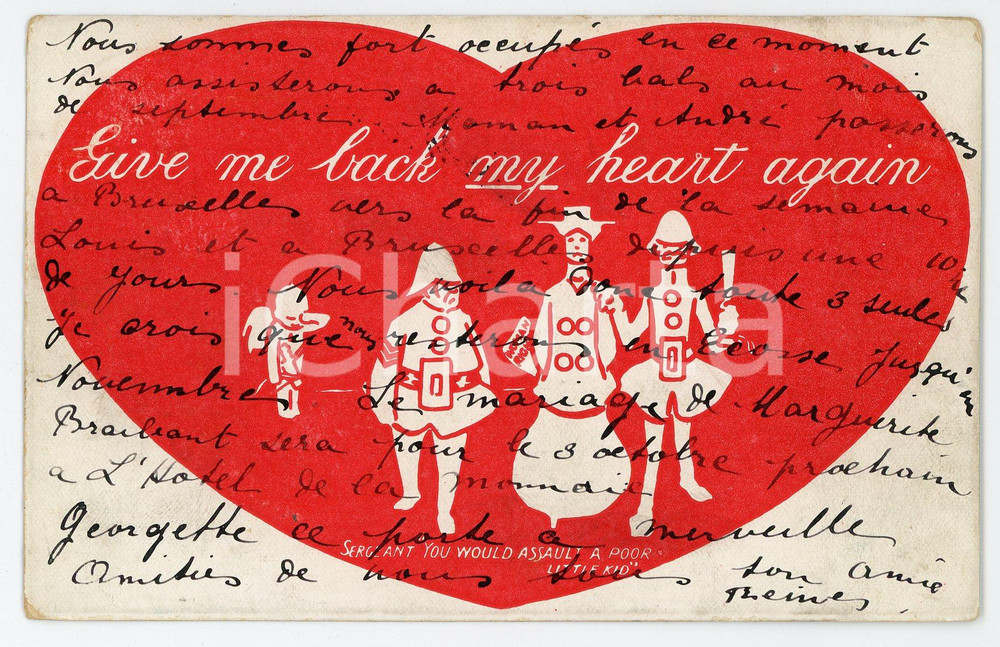 Nous sommes fort occupés en ce moment
Nous assisterons a trois bals au mois
de septembre. Maman et André passerons
Give me back my heart again
a Bruxelles vers la fin de la semaine
Louis et a Bruxelles depuis une
de jours. Nous voila donc toute 3 seules
iCharta
Je crois que nous resterons en Ecosse jusqu'en
Novembre. Le mariage de Marguerite
Braibant sera pour le 3 octobre prochain
a L'Hotel de la monnaie
Georgette ce porte a merveille
SERGEANT YOU WOULD ASSAULT A POOR
LITTLE KID"
Amitiés de nous tous ton amie